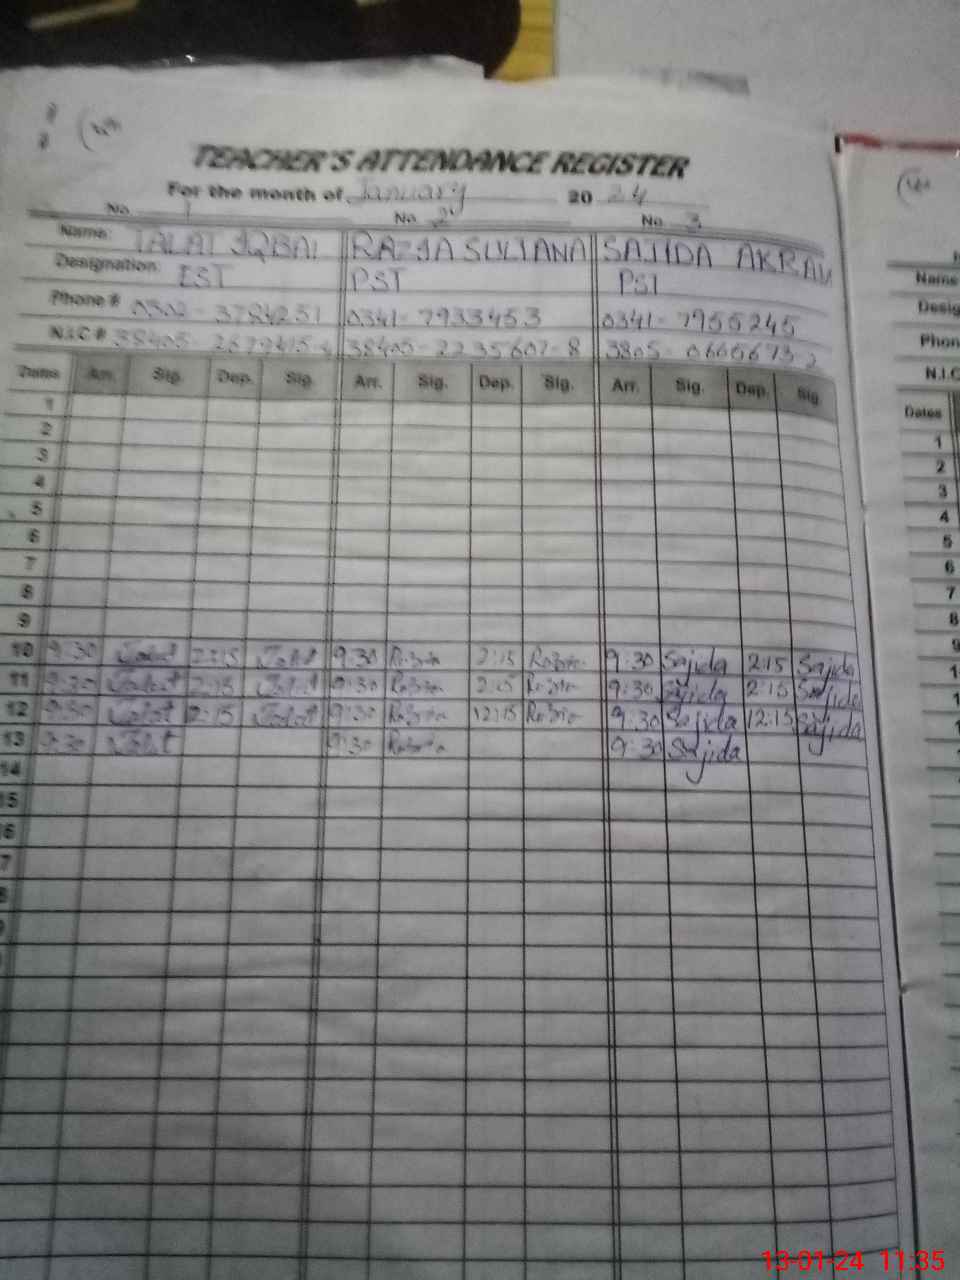 TEACHER'S ATTENDANCE REGISTER
For the month of January 2024
No. 1 No. 2 No. 3
Name: TALAT IQBAL RAZIA SULTANA SAJIDA AKRAM
Designation: EST PST PST
Phone # 0302-3784251 0341-7933453 0341-7955245
N.I.C # 38405 38405-2235607-8 3805-0666673-2
Dates Arr. Sig. Dep. Sig. Arr. Sig. Dep. Sig. Arr. Sig. Dep. Sig.
1
2
3
4
5
6
7
8
9
10 9:30 Talat 2:15 Talat 9:30 2:15 9:30 Sajida 2:15 Sajida
11 9:30 Talat 2:15 Talat 9:30 2:15 9:30 Sajida 2:15 Sajida
12 9:30 Talat 2:15 Talat 9:30 12:15 9:30 Sajida 12:15 Sajida
13 9:30 Talat 9:30 9:30 Sajida
14
15
6
7
8
Name
Desig
Phon
N.I.C
Dates
1
2
3
4
5
6
7
8
9
13-01-24 11:35